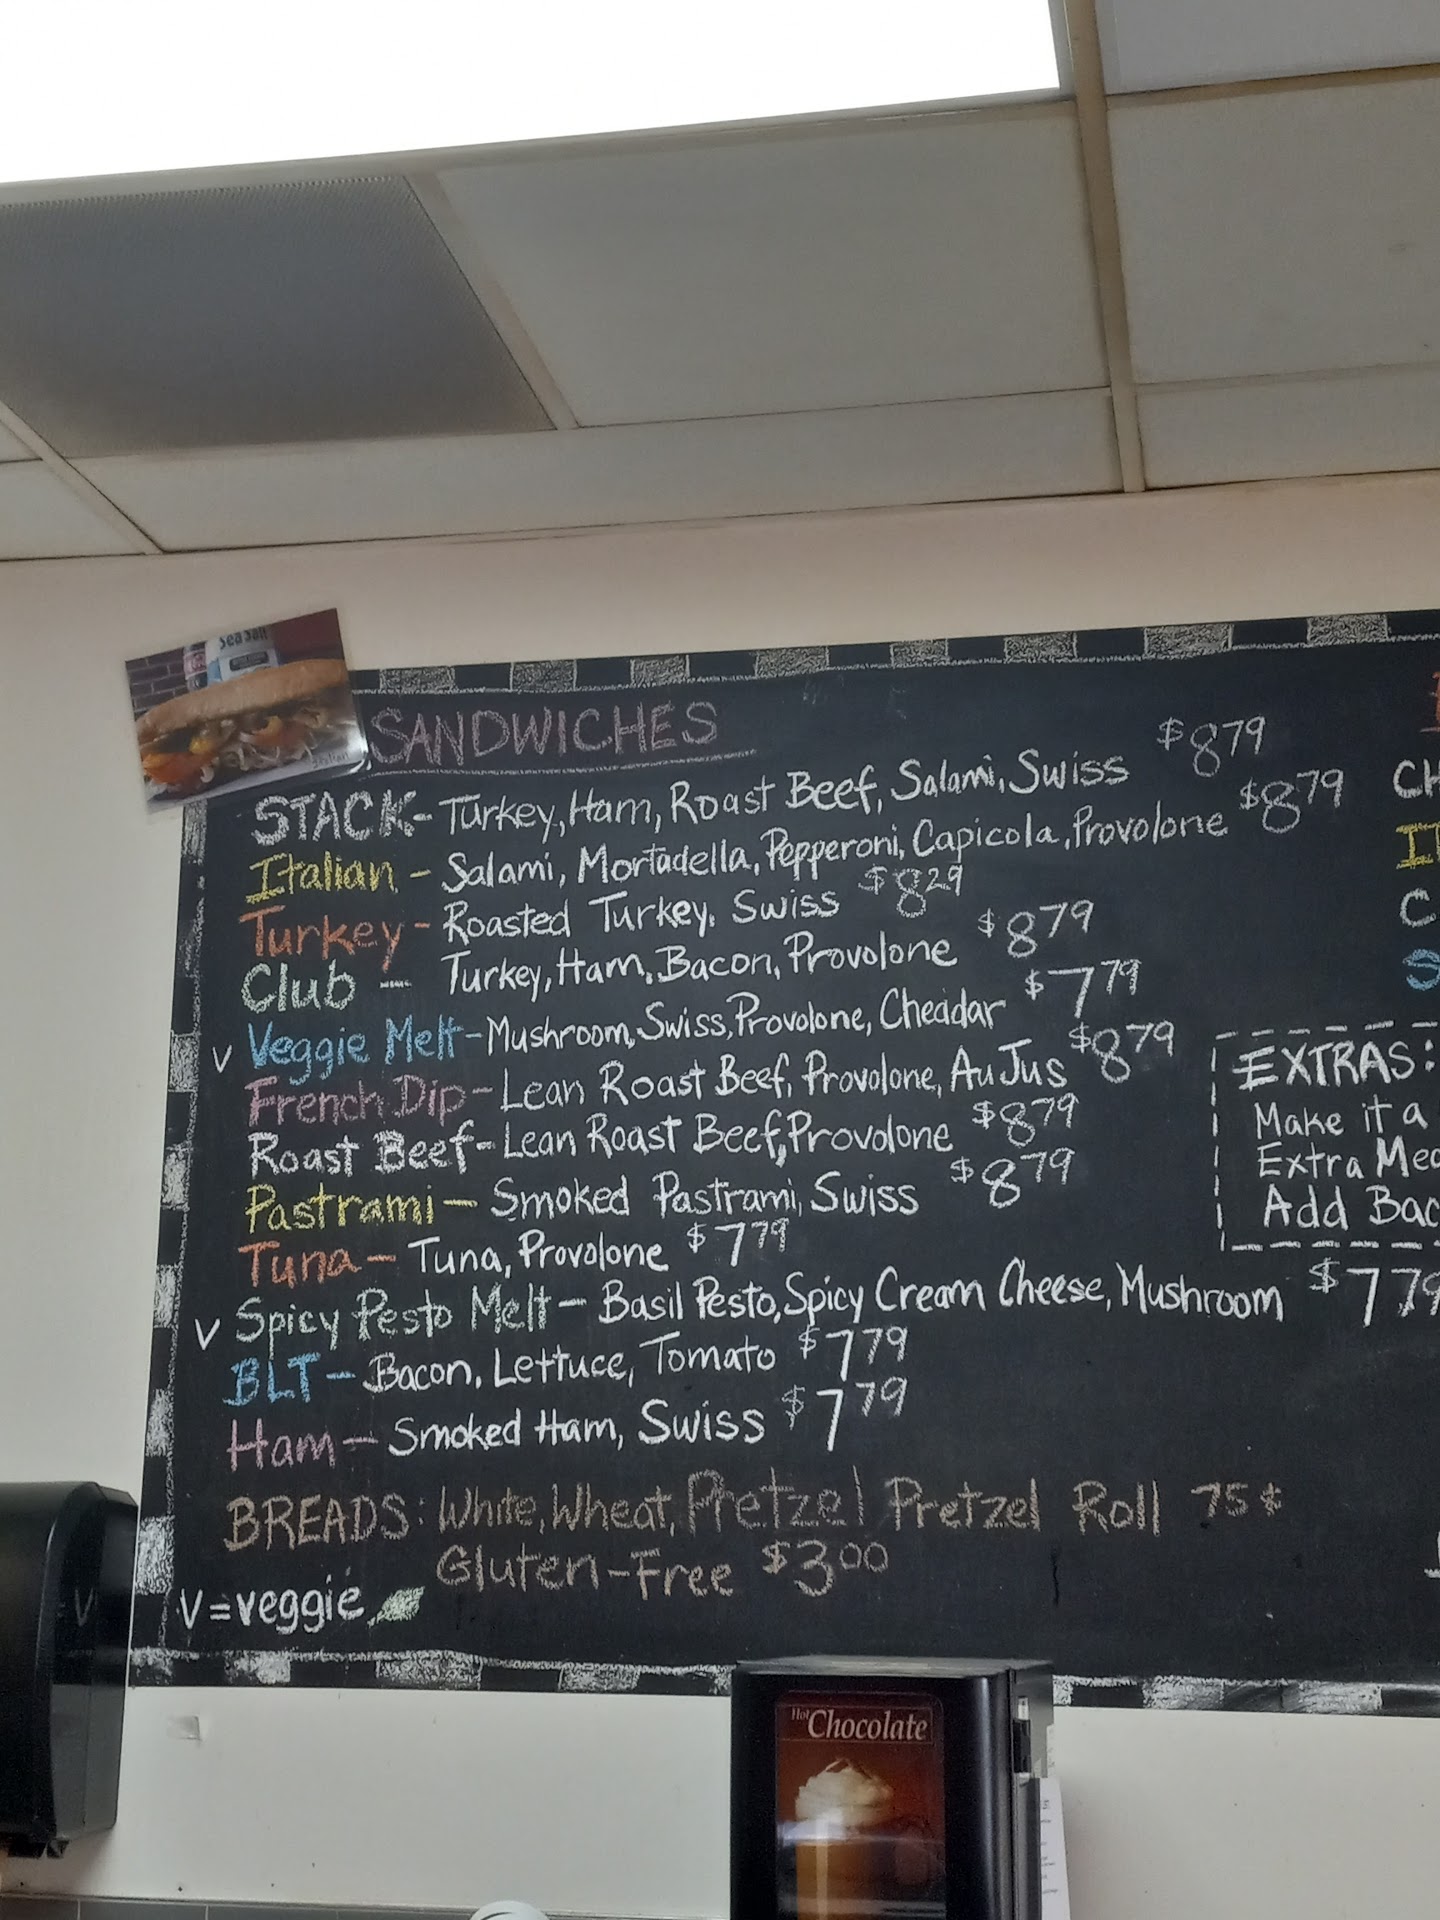 Sea Salt
SANDWICHES
STACK- Turkey, Ham, Roast Beef, Salami, Swiss $8 79
Italian - Salami, Mortadella, Pepperoni, Capicola, Provolone $8 79
Turkey - Roasted Turkey, Swiss $8 29
Club - Turkey, Ham, Bacon, Provolone $8 79
V Veggie Melt - Mushroom, Swiss, Provolone, Cheddar $7 79
French Dip - Lean Roast Beef, Provolone, Au Jus $8 79
Roast Beef - Lean Roast Beef, Provolone $8 79
Pastrami - Smoked Pastrami, Swiss $8 79
Tuna - Tuna, Provolone $7 79
V Spicy Pesto Melt - Basil Pesto, Spicy Cream Cheese, Mushroom $7 79
BLT - Bacon, Lettuce, Tomato $7 79
Ham - Smoked Ham, Swiss $7 79
BREADS: White, Wheat, Pretzel Pretzel Roll 75¢
Gluten-Free $3.00
V = veggie
EXTRAS:
Make it a
Extra
Add
Hot
Chocolate